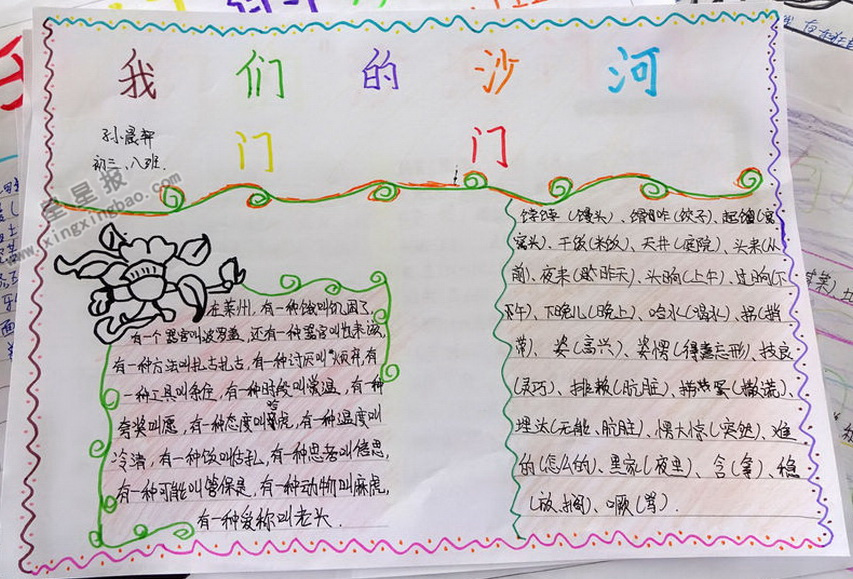 我 们 的 沙 河
门 门
孙晟
初三、八班.
星星报
www.xingxingbao.com
在莱州,有一种饿叫饥困了,
有一个器官叫波罗盖,还有一种器官叫
有一种方法叫扎古扎古,有一种讨厌叫烦
一种工具叫 有一种时段叫 有一种
夸奖叫愿,有一种态度叫 虎,有一种温度叫
冷清,有一种饭叫 有一种思考叫
有一种可能叫管保是,有一种动物叫麻虎,
有一种爱称叫老头.
饽饽(馒头)、 (饺子)、起馏(窝
窝头)、干饭(米饭)、天井(庭院)、头来(从
前)、夜来(昨天)、头晌(上午)、过晌(下
午)、下晚儿(晚上)、哈水(喝水)、拐(捎
带)、 (高兴)、 愣(得意忘形)、技良
(灵巧)、 (肮脏)、 (撒谎)、
埋汰(无能、肮脏)、愣大惊(突然)、
的(怎么的)、黑家(夜里)、
(放、搁)、噘(骂).